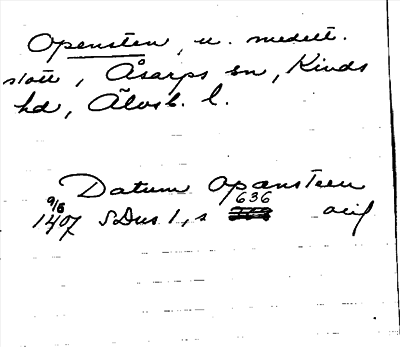 Opensten, u. medelt.
slott, Åsarps sn, Kinds
hd, Älvsb. l.
Datum Opansteen
9/6 636
1407 SDns 1, s orig